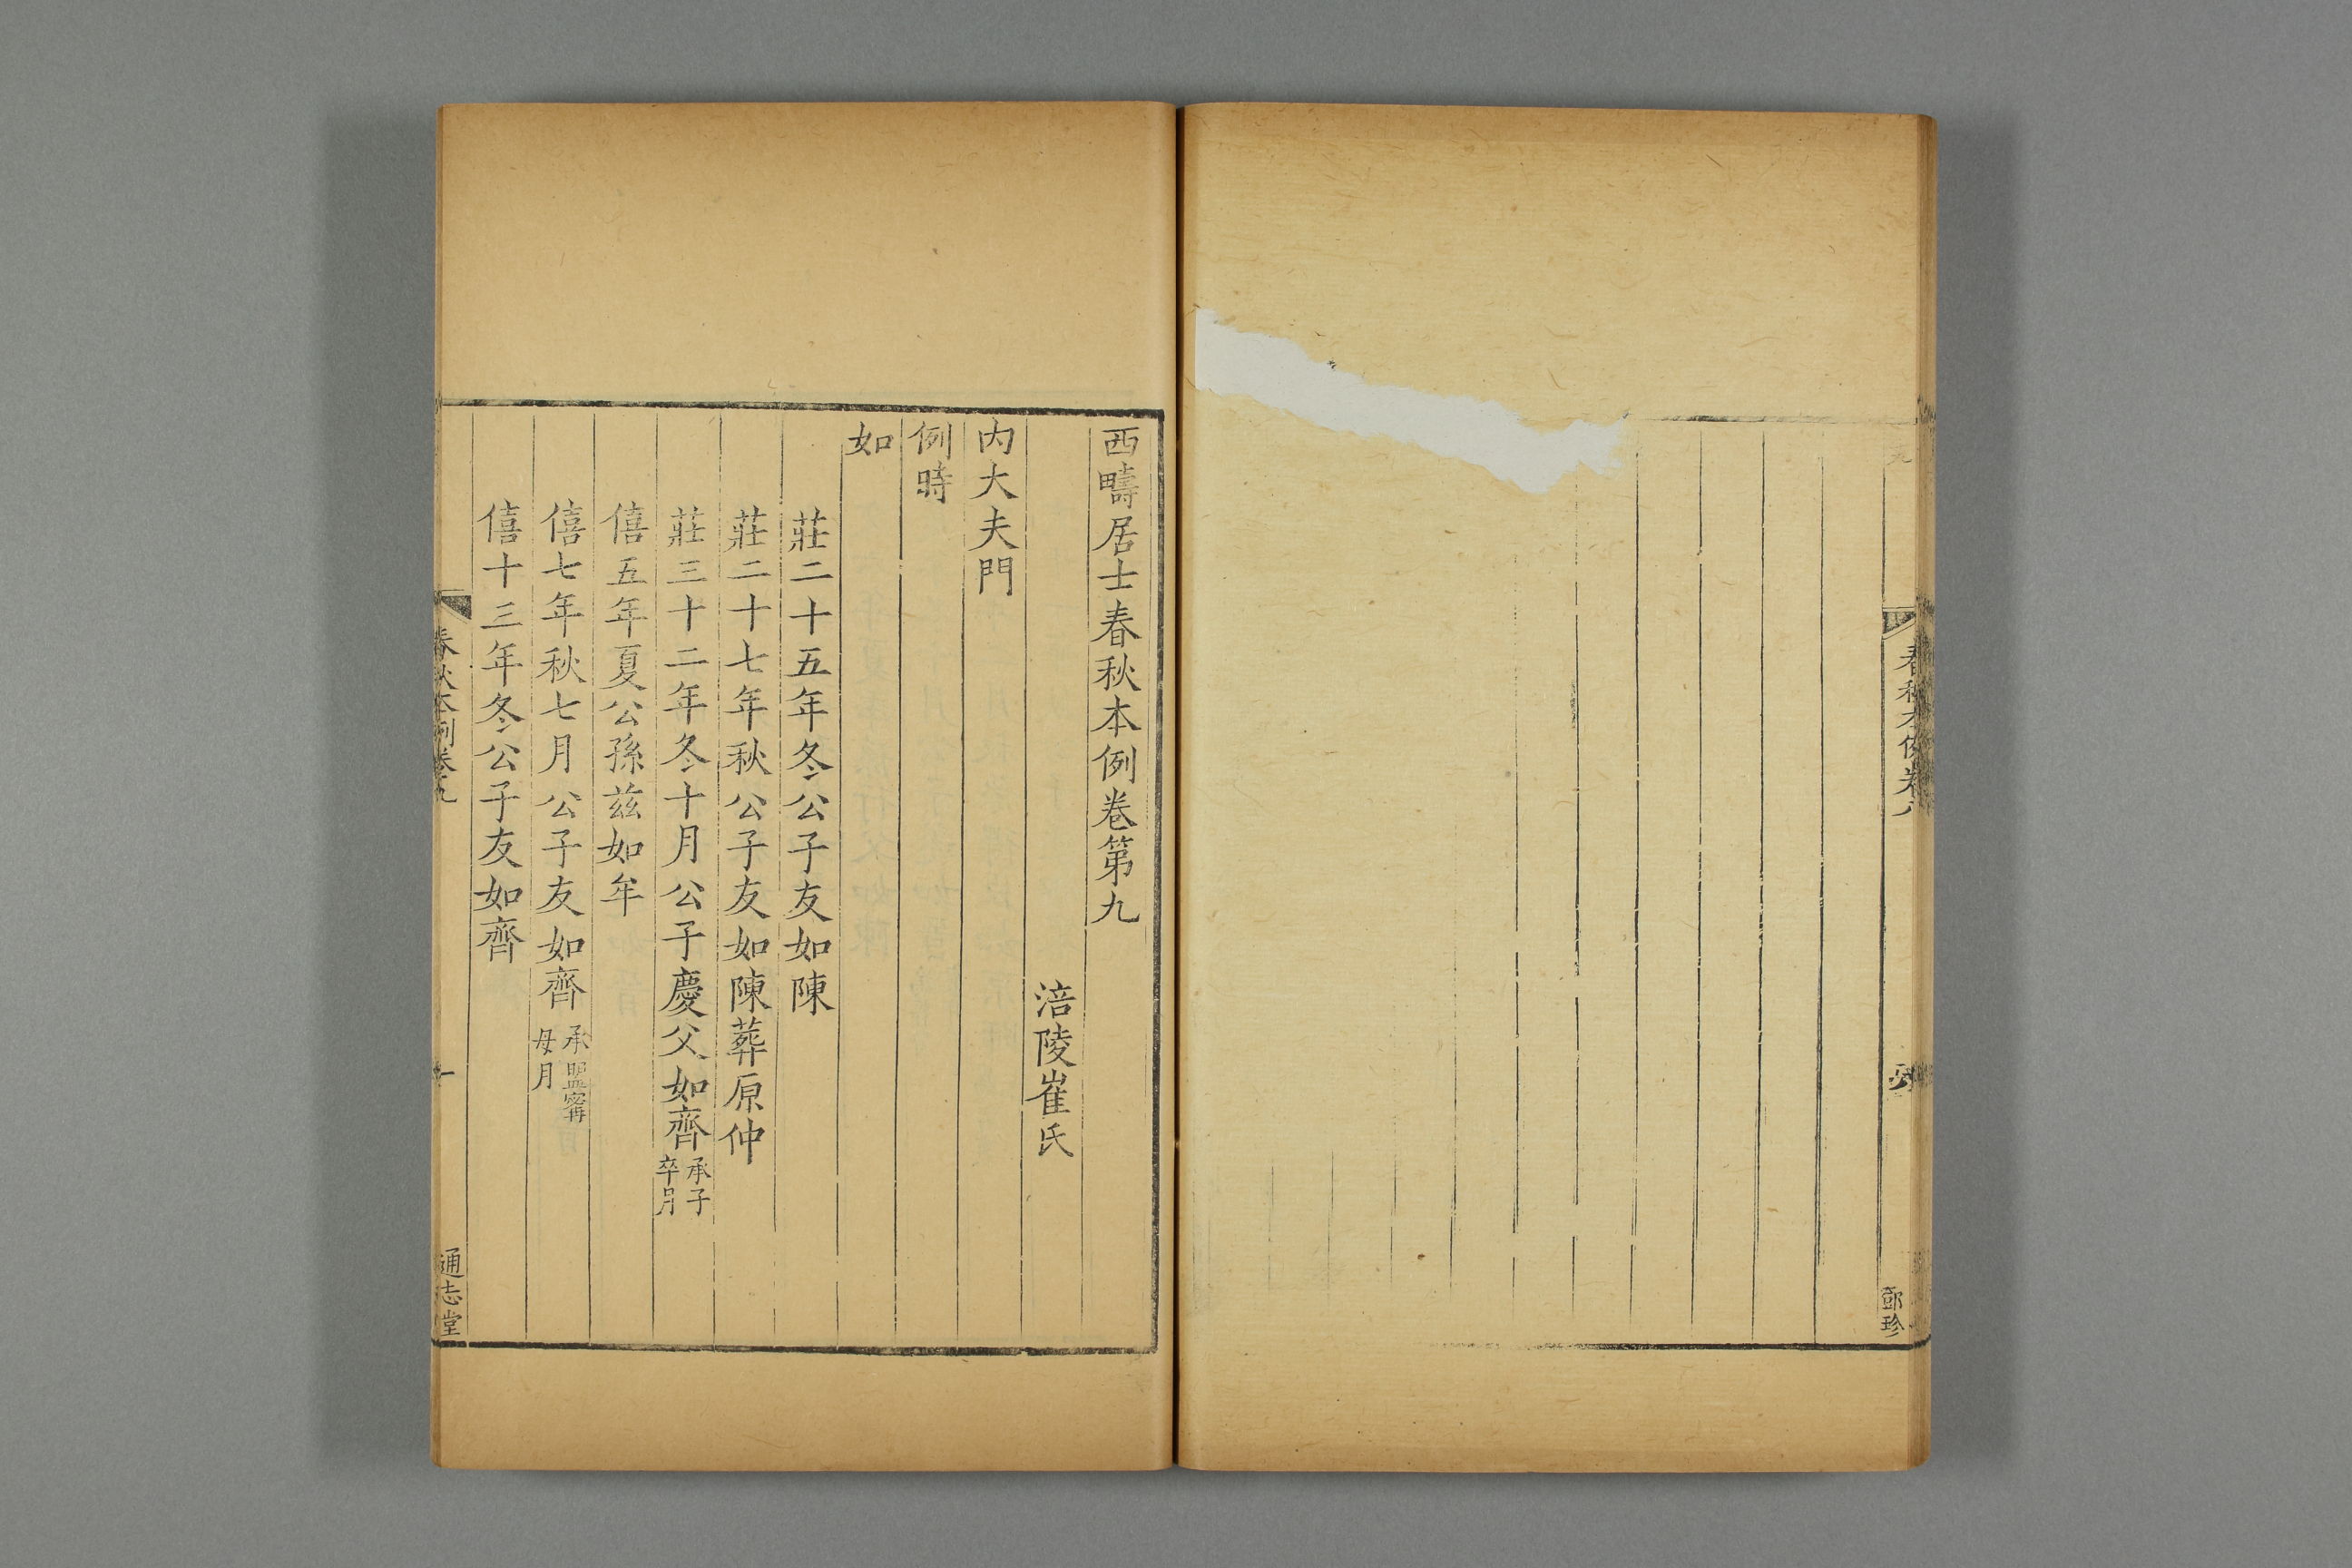 春秋本例卷八
鄧珍
西疇居士春秋本例卷第九
涪陵崔氏
内大夫門
例時
如
莊二十五年冬公子友如陳
莊二十七年秋公子友如陳葬原仲
莊三十二年冬十月公子慶父如齊承子卒月
僖五年夏公孫茲如牟
僖七年秋七月公子友如齊承盟甯母月
僖十三年冬公子友如齊
春秋本例卷九
一
通志堂